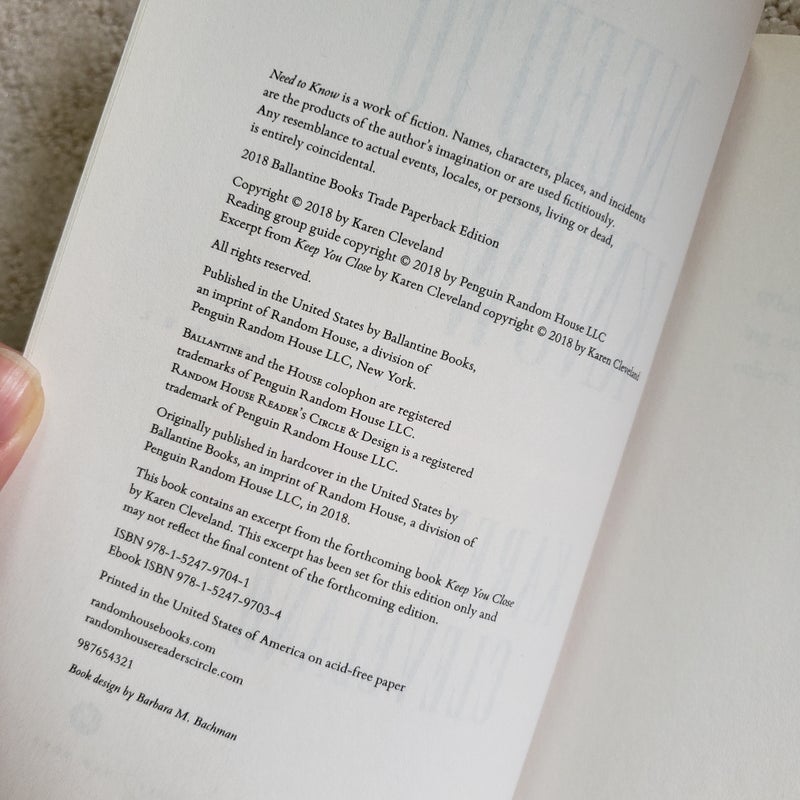 Need to Know is a work of fiction. Names, characters, places, and incidents
are the products of the author's imagination or are used fictitiously.
Any resemblance to actual events, locales, or persons, living or dead,
is entirely coincidental.
2018 Ballantine Books Trade Paperback Edition
Copyright © 2018 by Karen Cleveland
Reading group guide copyright © 2018 by Penguin Random House LLC
Excerpt from Keep You Close by Karen Cleveland copyright © 2018 by Karen Cleveland
All rights reserved.
Published in the United States by Ballantine Books,
an imprint of Random House, a division of
Penguin Random House LLC, New York.
BALLANTINE and the HOUSE colophon are registered
trademarks of Penguin Random House LLC.
RANDOM HOUSE READER'S CIRCLE & Design is a registered
trademark of Penguin Random House LLC.
Originally published in hardcover in the United States by
Ballantine Books, an imprint of Random House, a division of
Penguin Random House LLC, in 2018.
This book contains an excerpt from the forthcoming book Keep You Close
by Karen Cleveland. This excerpt has been set for this edition only and
may not reflect the final content of the forthcoming edition.
ISBN 978-1-5247-9704-1
Ebook ISBN 978-1-5247-9703-4
Printed in the United States of America on acid-free paper
randomhousebooks.com
randomhousereaderscircle.com
987654321
Book design by Barbara M. Bachman